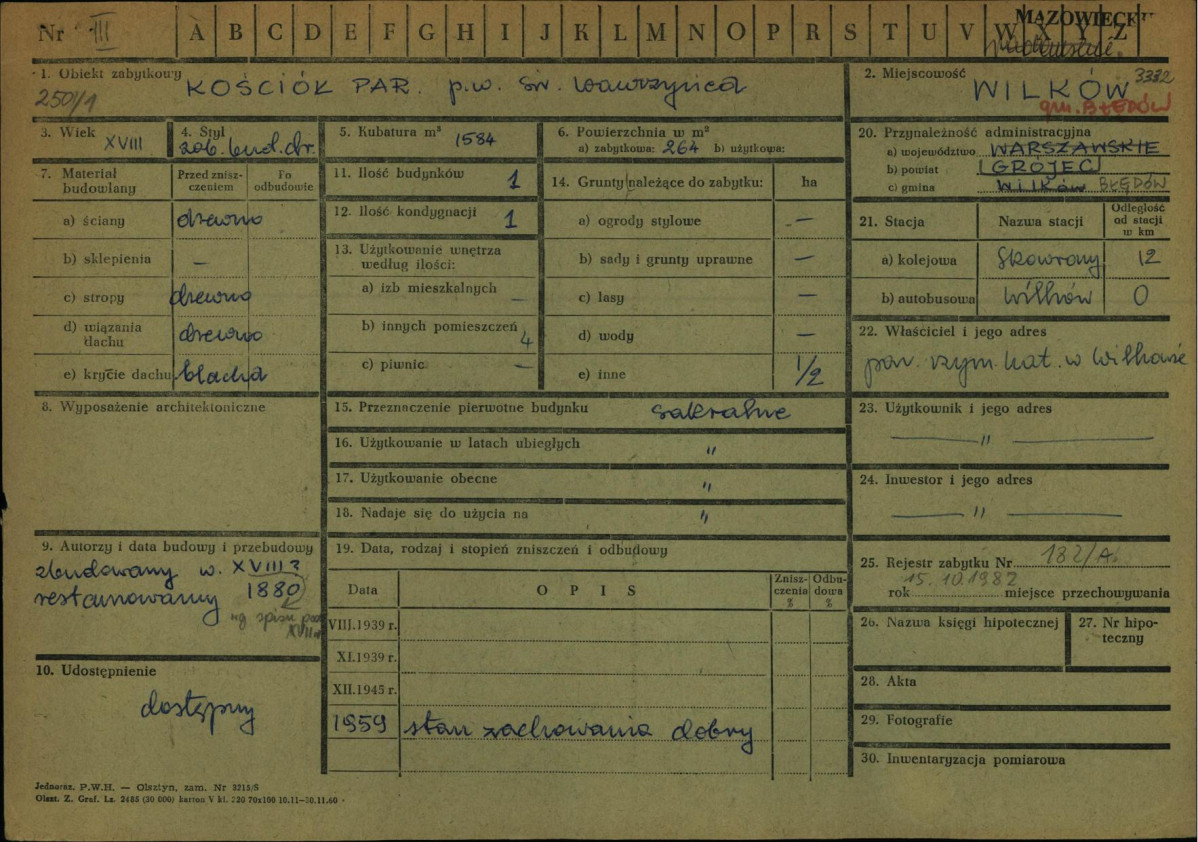 Nr III A B C D E F G H I J K L M N O P R S T U V W X Y Z MAZOWIECK
1. Obiekt zabytkowy KOŚCIÓŁ PAR. p.w. św. Wawrzyńca
250/1
2. Miejscowość 3332
WILKÓW
gm. BŁĘDÓW
3. Wiek XVIII
4. Styl zob. bud. dr.
5. Kubatura m³ 1584
6. Powierzchnia w m²
a) zabytkowa: 264 b) użytkowa:
7. Materiał budowlany
Przed zniszczeniem
Po odbudowie
a) ściany drewno
b) sklepienia —
c) stropy drewno
d) wiązania dachu drewno
e) krycie dachu blacha
8. Wyposażenie architektoniczne
9. Autorzy i data budowy i przebudowy
zbudowany w. XVIII?
restaurowany 1880
wg spisu
XVII
10. Udostępnienie
dostępny
11. Ilość budynków 1
12. Ilość kondygnacji 1
13. Użytkowanie wnętrza
według ilości:
a) izb mieszkalnych —
b) innych pomieszczeń 4
c) piwnic —
14. Grunty należące do zabytku: ha
a) ogrody stylowe —
b) sady i grunty uprawne —
c) lasy —
d) wody —
e) inne 1/2
15. Przeznaczenie pierwotne budynku sakralne
16. Użytkowanie w latach ubiegłych "
17. Użytkowanie obecne "
18. Nadaje się do użycia na "
19. Data, rodzaj i stopień zniszczeń i odbudowy
Data OPIS Zniszczenia % Odbudowa %
VIII.1939 r.
XI.1939 r.
XII.1945 r.
1959 stan zachowania dobry
20. Przynależność administracyjna
a) województwo WARSZAWSKIE
b) powiat GRÓJEC
c) gmina WILKÓW BŁĘDÓW
21. Stacja Nazwa stacji Odległość od stacji w km
a) kolejowa Skowrony 12
b) autobusowa Wilków 0
22. Właściciel i jego adres
par. rzym. kat. w Wilkowie
23. Użytkownik i jego adres
— " —
24. Inwestor i jego adres
— " —
25. Rejestr zabytku Nr 182/A
15.10.1982
rok miejsce przechowywania
26. Nazwa księgi hipotecznej
27. Nr hipoteczny
28. Akta
29. Fotografie
30. Inwentaryzacja pomiarowa
Jednoraz. P.W.H. — Olsztyn, zam. Nr 3215/S
Olszt. Z. Graf. Lz. 2485 (30 000) karton V kl. 220 70x100 10.11—30.11.60